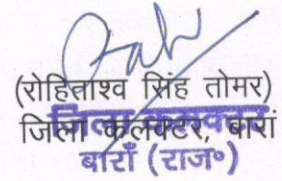 (रोहिताश्व सिंह तोमर)
जिला कलक्टर, बारां
जिला कलक्टर
बाराँ (राज०)